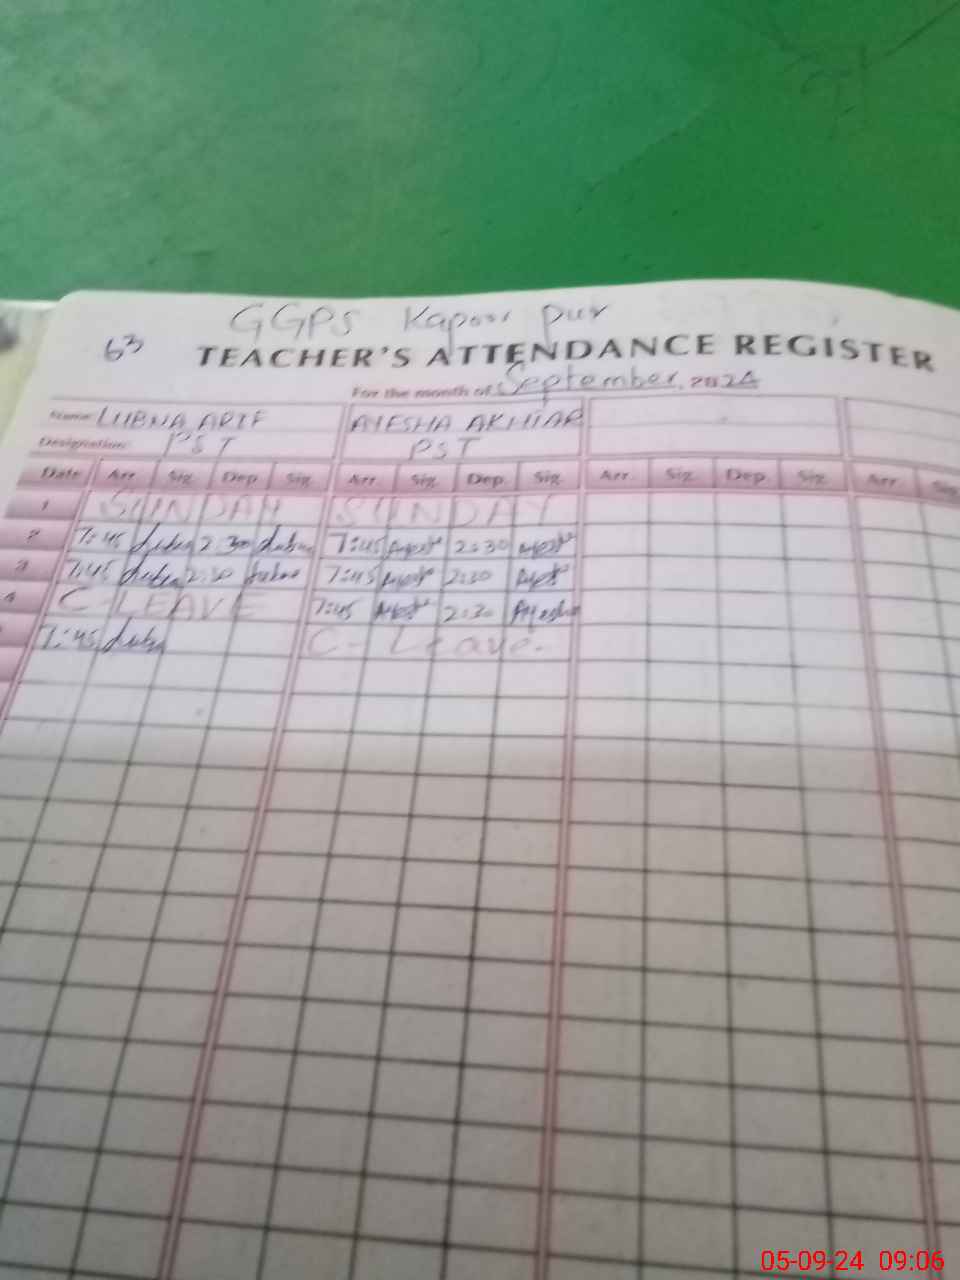 GGPS Kapoor pur
63 TEACHER'S ATTENDANCE REGISTER
For the month of September, 2024
Name: LUBNA ARIF AYESHA AKHTAR
Designation: PST PST
Date Arr. Sig. Dep. Sig. Arr. Sig. Dep. Sig. Arr. Sig. Dep. Sig. Arr. Sig.
1 SUNDAY SUNDAY
2 7:45 Lubna 2:30 Lubna 7:45 Ayesha 2:30 Ayesha
3 7:45 Lubna 2:30 Lubna 7:45 Ayesha 2:30 Ayesha
4 C-LEAVE 7:45 Ayesha 2:30 Ayesha
7:45 Lubna C-Leave.
05-09-24 09:06